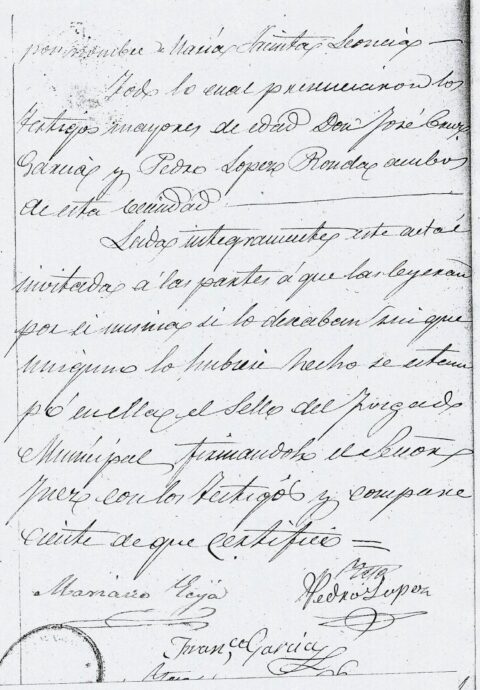 por nombre de María Trinita Leoncia —
Todo lo cual presenciaron los
testigos mayores de edad Don José Cruz
García y Pedro Lopez Ronda ambos
de esta becindad —
Leida integramente este acta é
invitada á las partes á que las leyeran
por si misma si lo deseaban sin que
ninguno lo hubiere hecho se estam
pó en ella el Sello del Juzgado
Municipal firmandola el Señor
Juez con los testigos y compare
ciente de que certifico =
Mariano
Pedro Lopez
Fran.co García